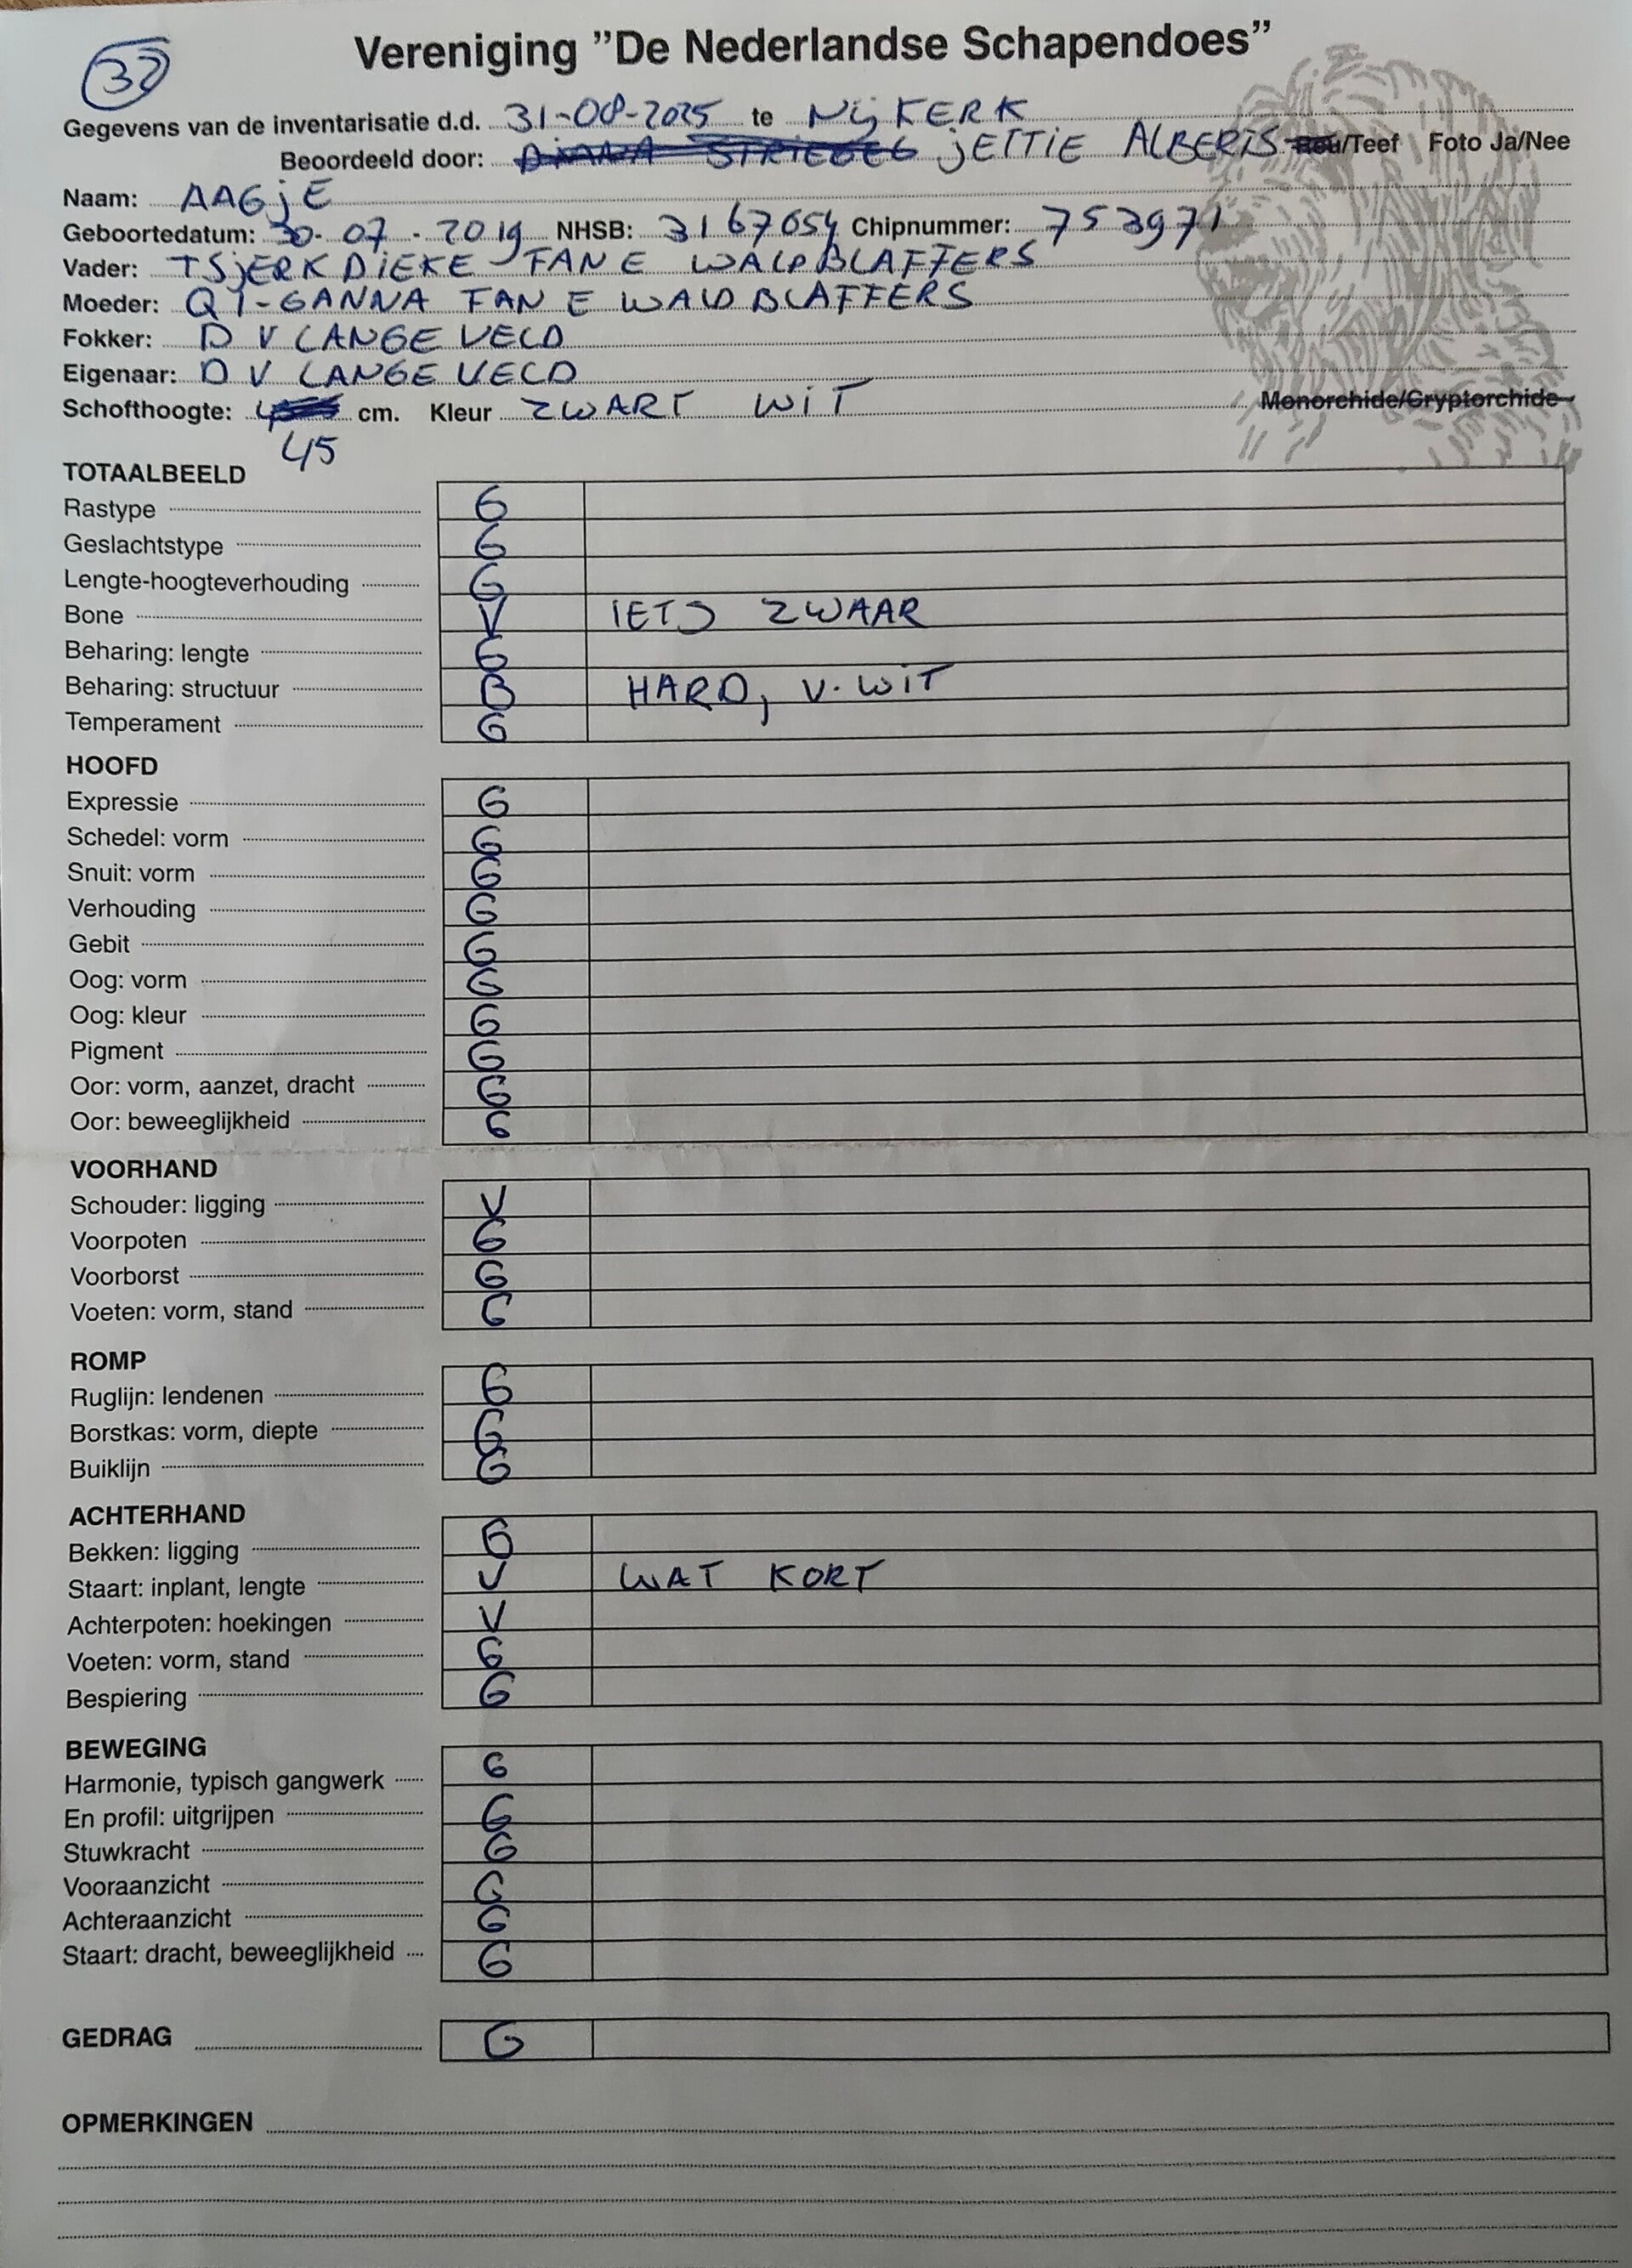 32
Vereniging ”De Nederlandse Schapendoes”
Gegevens van de inventarisatie d.d. 31-08-2025 te NijKERK
Beoordeeld door: jETTiE ALBERTS Reu/Teef Foto Ja/Nee
Naam: AAGjE
Geboortedatum: 30-07-2019 NHSB: 3167654 Chipnummer: 753971
Vader: TSjERK DiEKE FAN E WALDBLAFFERS
Moeder: QT-GANNA FAN E WALDBLAFFERS
Fokker: D V LANGEVELD
Eigenaar: D V LANGEVELD
Schofthoogte: cm. Kleur ZWART WiT Monorchide/Cryptorchide
45
TOTAALBEELD
Rastype G
Geslachtstype G
Lengte-hoogteverhouding G
Bone V IETS ZWAAR
Beharing: lengte G
Beharing: structuur B HARD, V. WiT
Temperament G
HOOFD
Expressie G
Schedel: vorm G
Snuit: vorm G
Verhouding G
Gebit G
Oog: vorm G
Oog: kleur G
Pigment G
Oor: vorm, aanzet, dracht G
Oor: beweeglijkheid G
VOORHAND
Schouder: ligging V
Voorpoten G
Voorborst G
Voeten: vorm, stand G
ROMP
Ruglijn: lendenen G
Borstkas: vorm, diepte G
Buiklijn G
ACHTERHAND
Bekken: ligging G
Staart: inplant, lengte V WAT KORT
Achterpoten: hoekingen V
Voeten: vorm, stand G
Bespiering G
BEWEGING
Harmonie, typisch gangwerk G
En profil: uitgrijpen G
Stuwkracht G
Vooraanzicht G
Achteraanzicht G
Staart: dracht, beweeglijkheid G
GEDRAG G
OPMERKINGEN